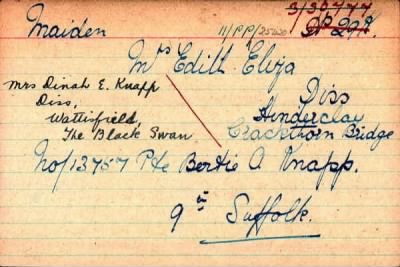 3/30777
Maiden 11/PP/25620
Mrs Edith Eliza
Mrs Dinah E. Knapp
Diss,
Wattisfield,
The Black Swan
Diss
Hinderclay
Crackthorn Bridge
No/13757 Pte Bertie A Knapp.
9th Suffolk.